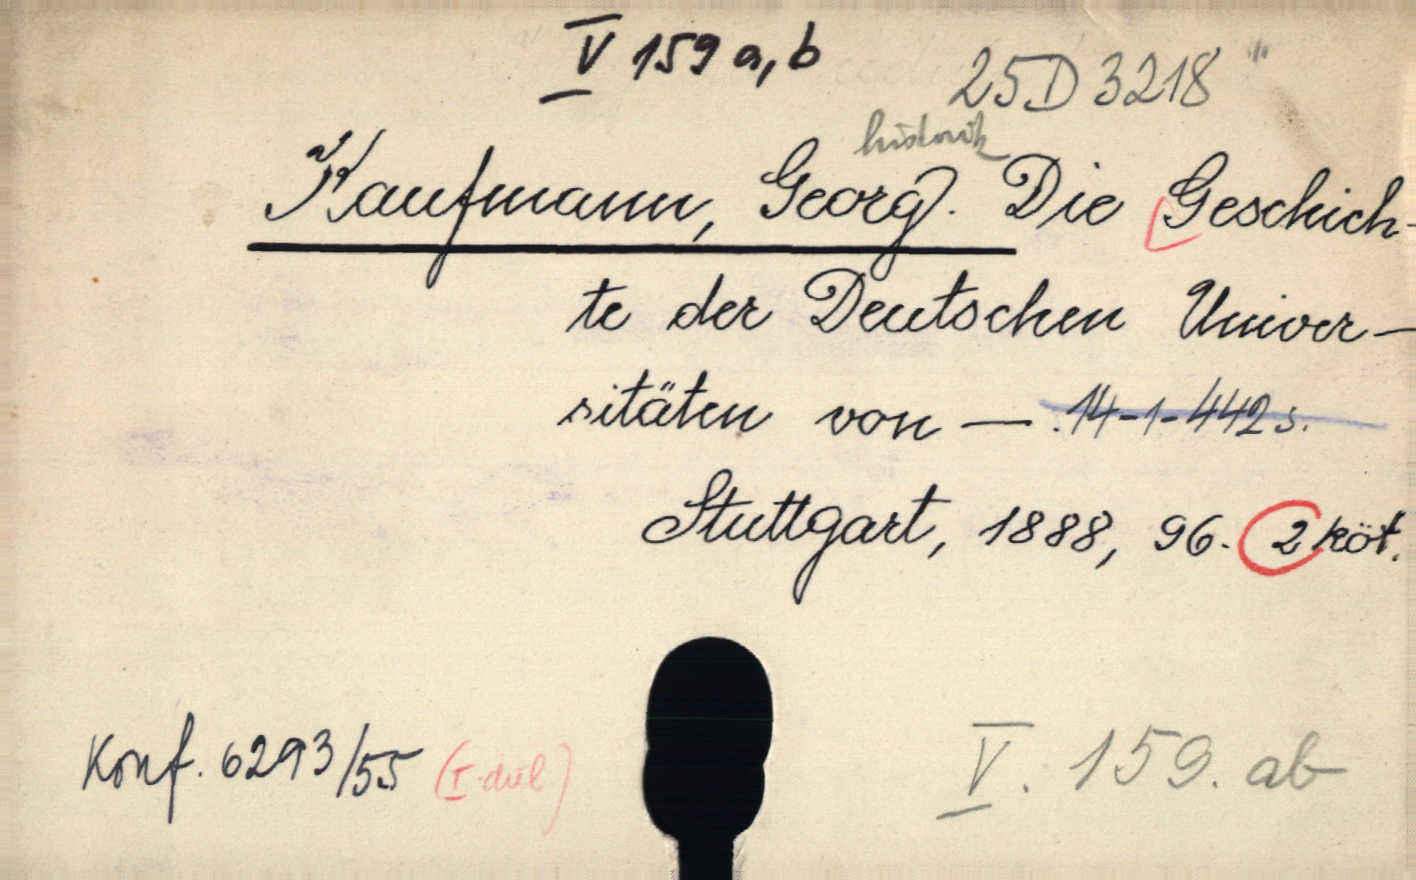 V 159 a, b
25 D 3218
historik
Kaufmann, Georg. Die Geschich-
te der Deutschen Univer-
sitäten von — 14-1-442 s.
Stuttgart, 1888, 96. 2 köt.
Konf. 6293/55 (I. diel)
V. 159. ab